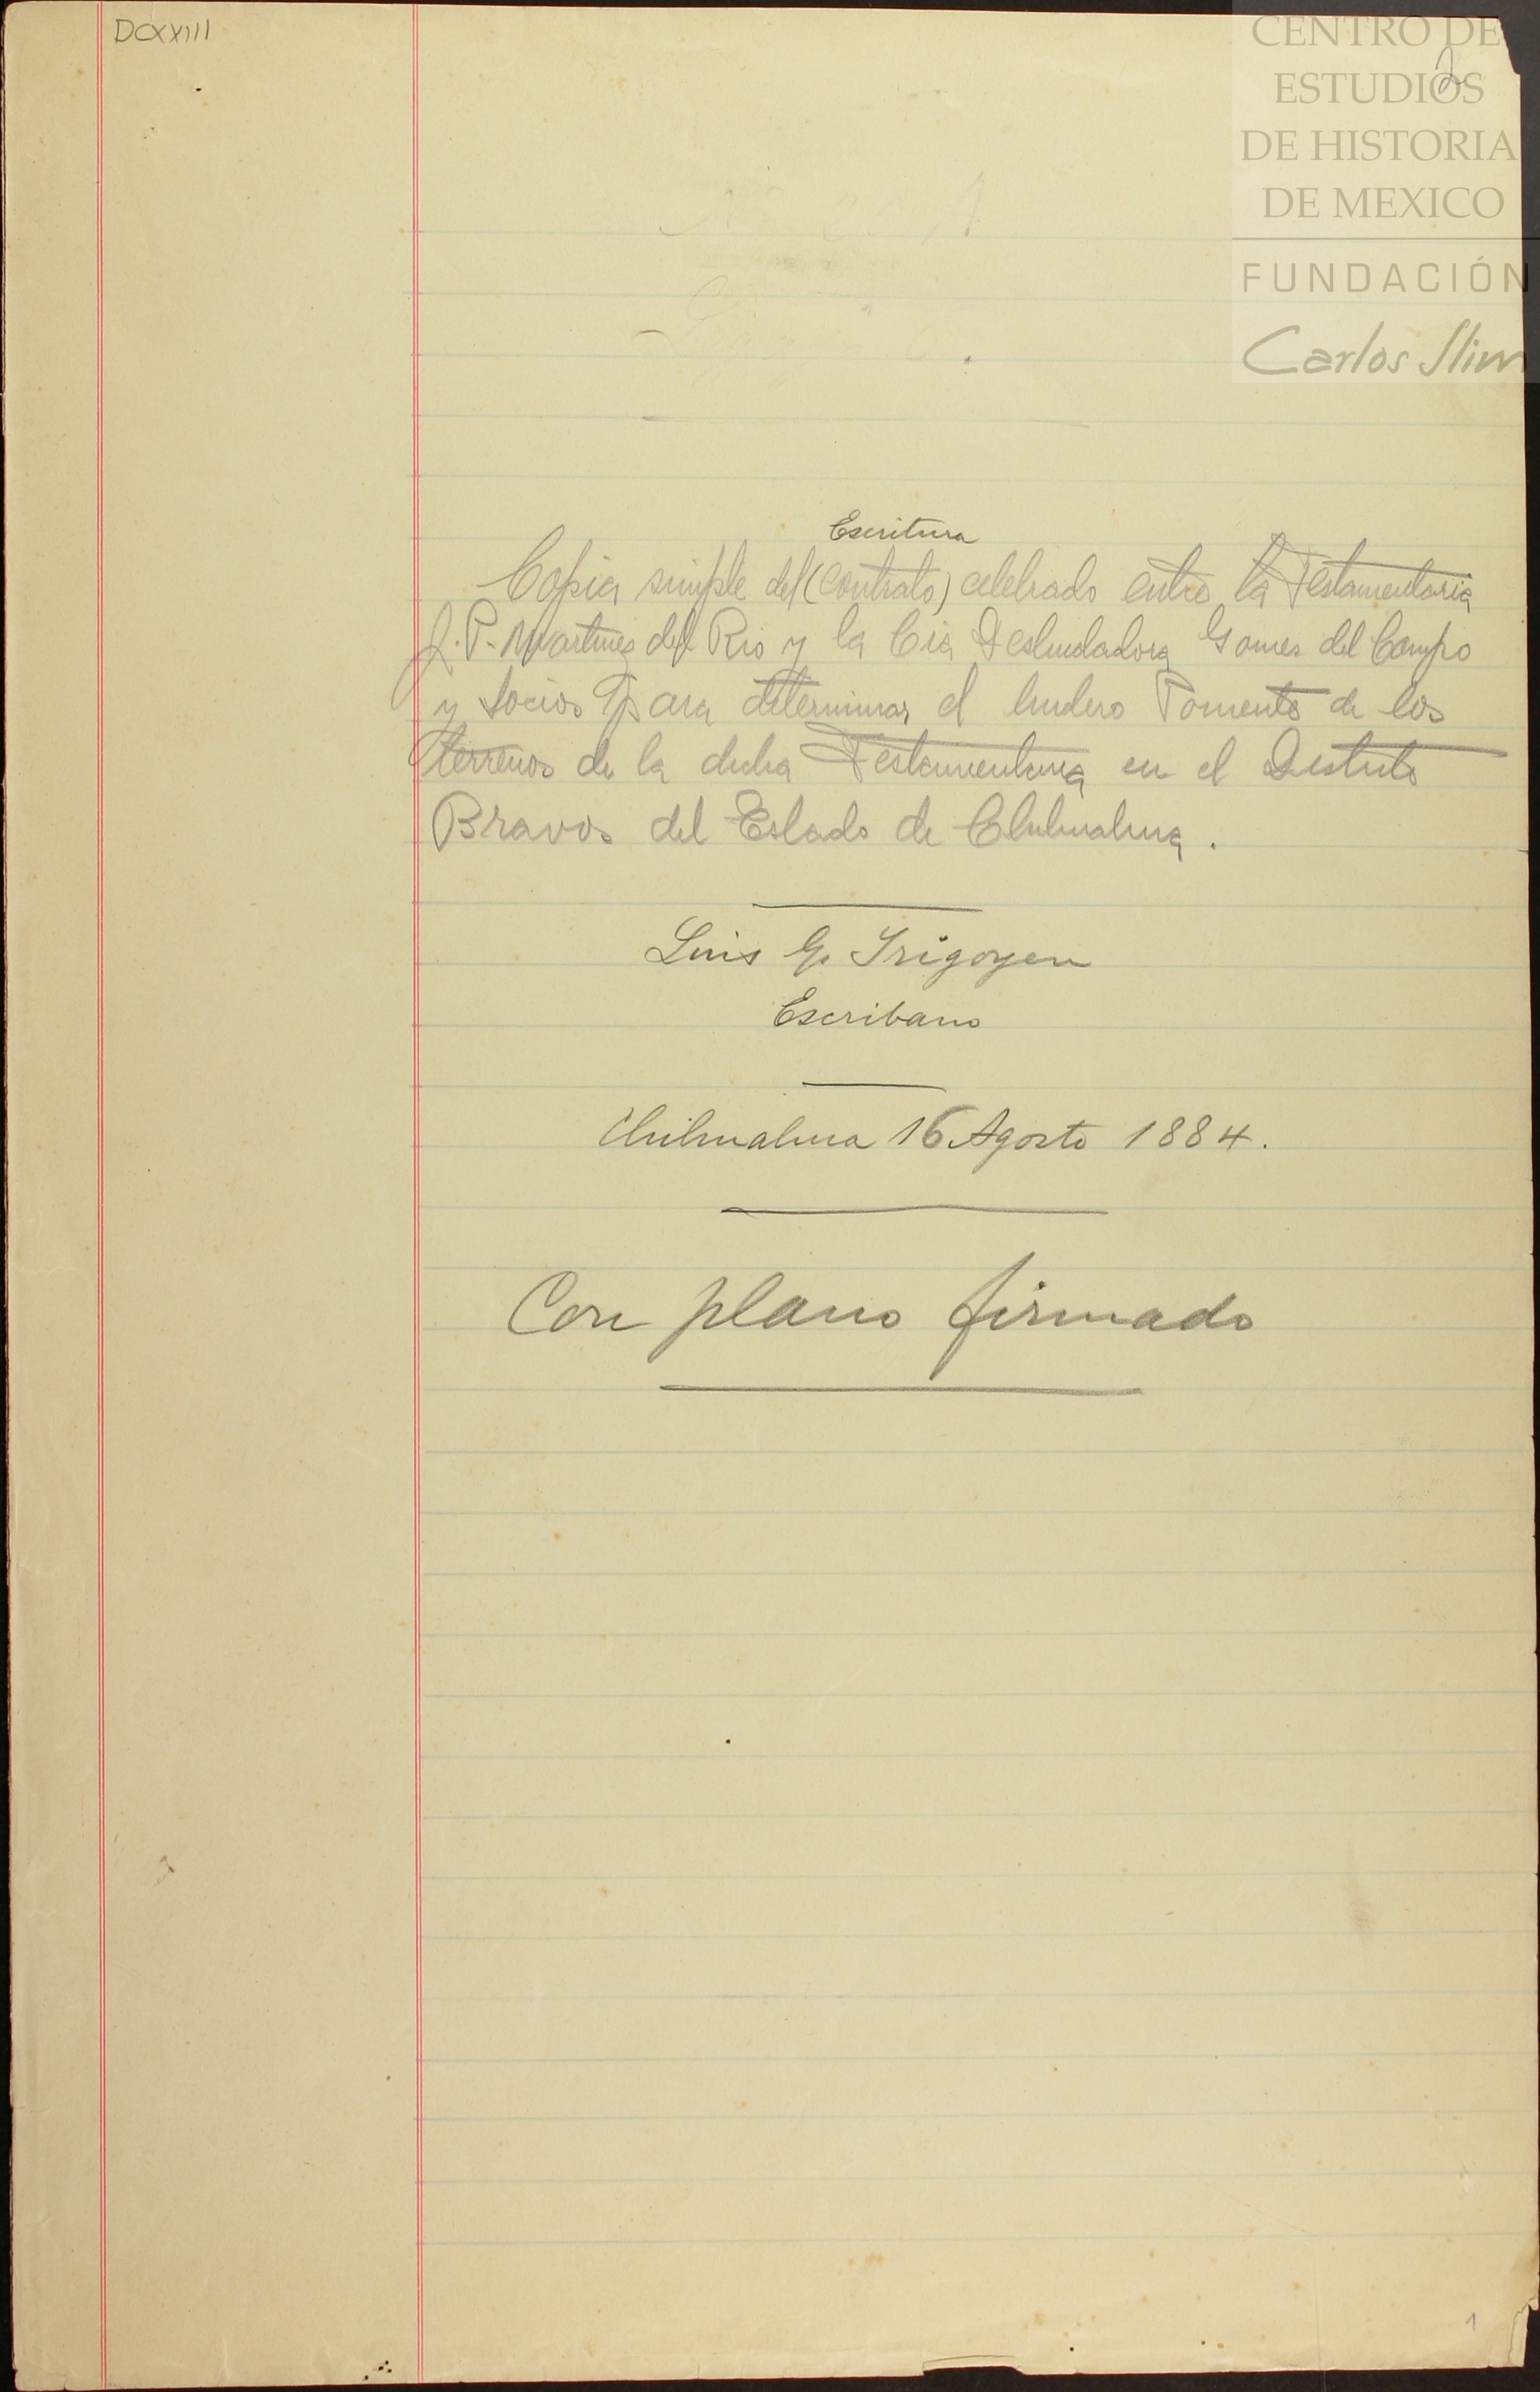 DCXXIII
CENTRO DE
ESTUDIOS
DE HISTORIA
DE MEXICO
FUNDACIÓN
Carlos Slim
2
Escritura
Copia simple del (contrato) celebrado entre la Testamentaria
J. P. Martinez del Rio y la Cia Deslindadora Gomez del Campo
y Socios para determinar el lindero Poniente de los
terrenos de la dicha Testamentaria en el Distrito
Bravos del Estado de Chihuahua.
Luis G. Irigoyen
Escribano
Chihuahua 16 Agosto 1884.
Con plano firmado
1